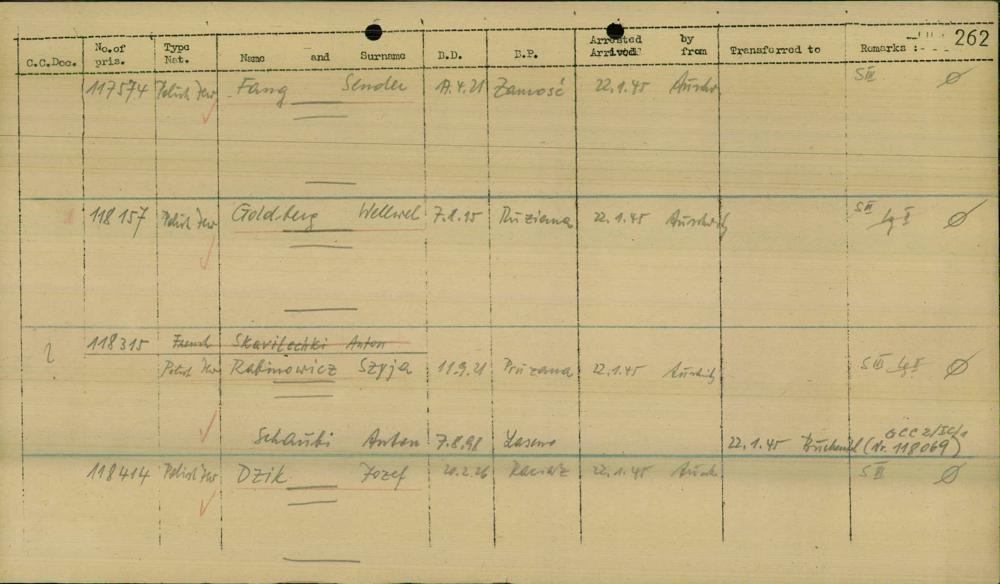 262
C.C.Doc. No.of pris. Type Nat. Name and Surname D.D. B.P. Arrested Arrived by from Transferred to Remarks :
117574 Polish Jew Fang Sender 17.4.21 Zamość 22.1.45 Auschw. S III
118157 Polish Jew Goldberg Wellwel 22.1.45 Auschwitz S III
118315 French Skavilechki Anton
2 Polish Jew Rabinowicz Szyja 11.9.21 Pruzana 22.1.45 Auschwitz S III
Schaubi Anton 7.8.98 22.1.45 Buchenwld (Nr. 118069) GCC 2/
118414 Polish Jew Dzik Jozef 20.2.26 22.1.45 Ausch. S III